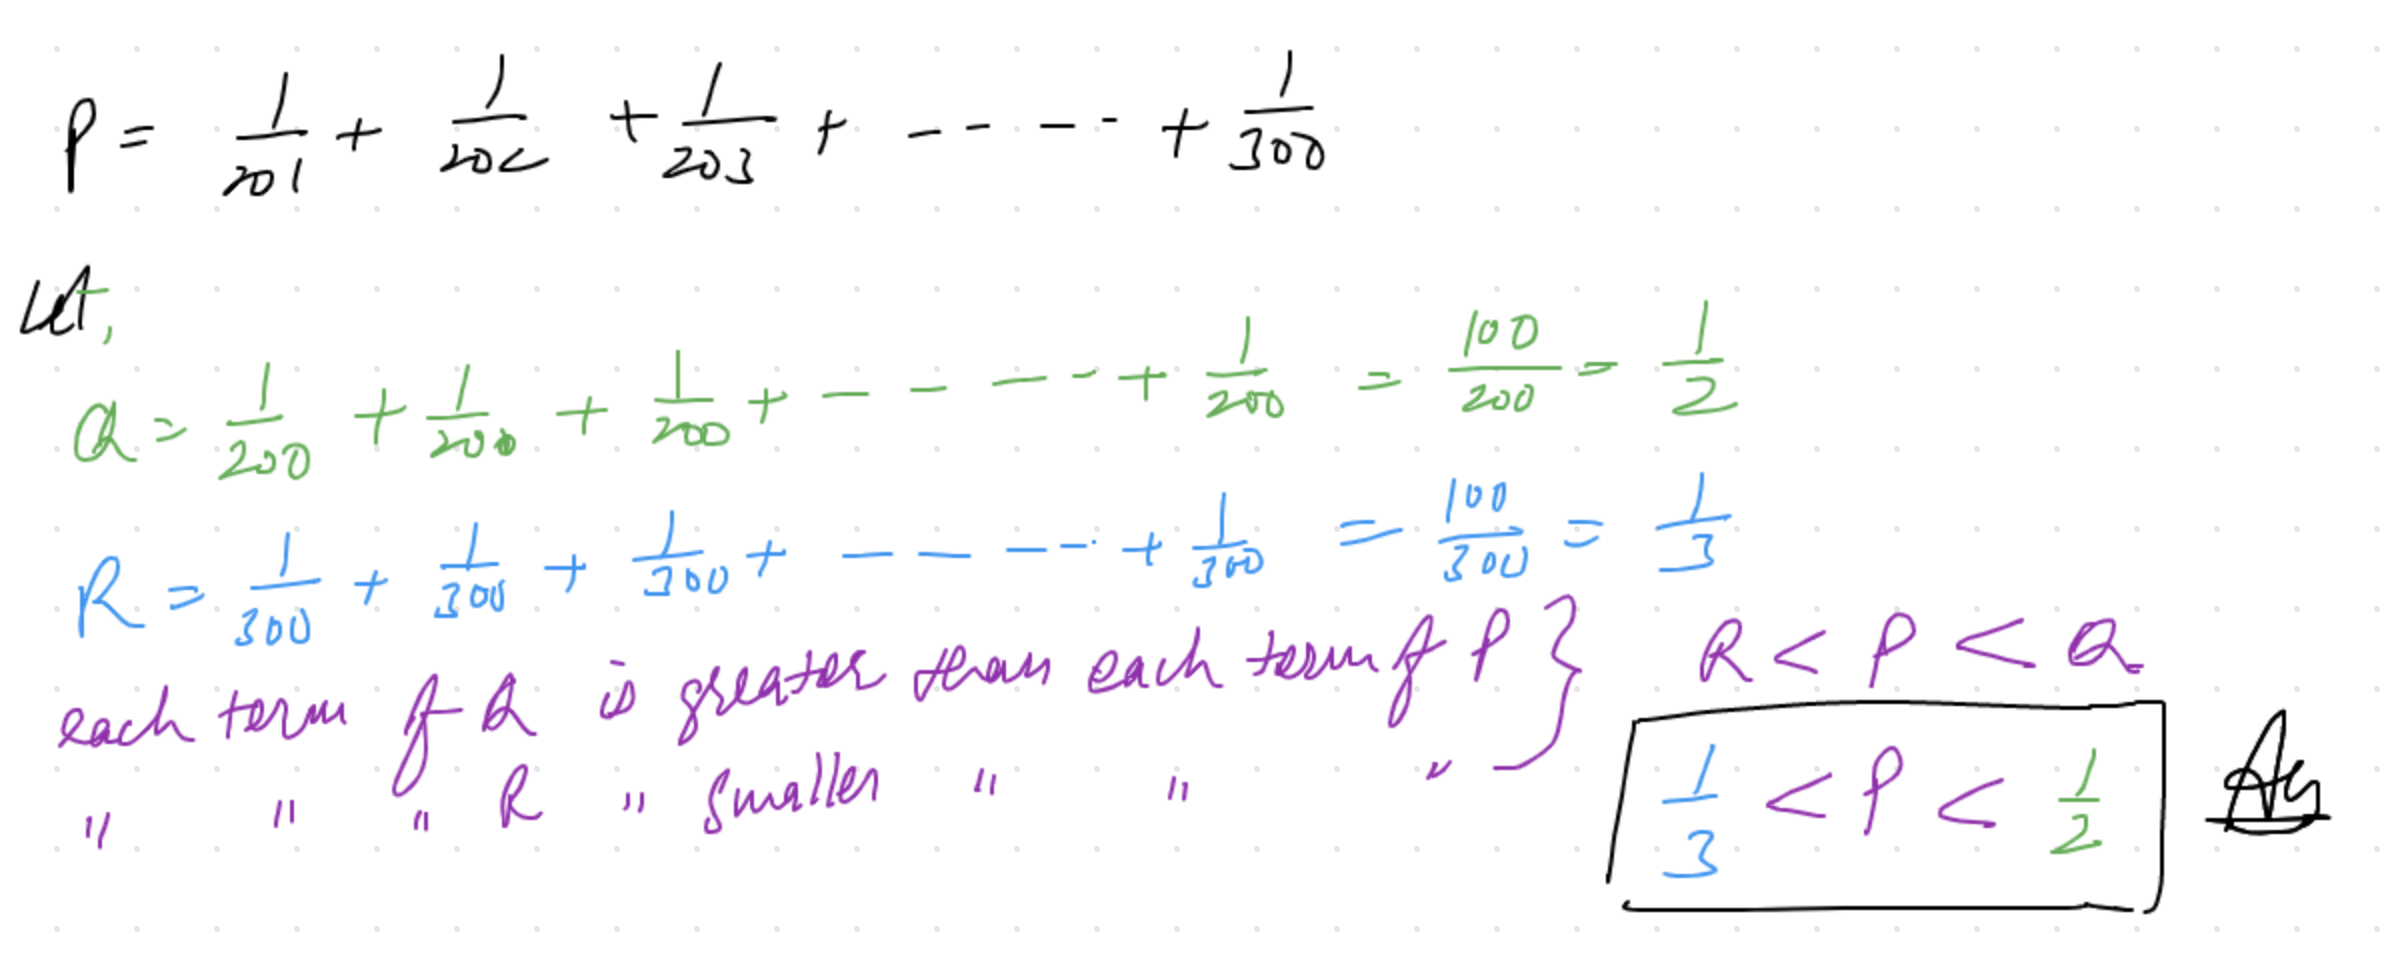 P = 1/201 + 1/202 + 1/203 + ---- + 1/300
Let,
Q = 1/200 + 1/200 + 1/200 + ---- + 1/200 = 100/200 = 1/2
R = 1/300 + 1/300 + 1/300 + ---- + 1/300 = 100/300 = 1/3
each term of Q is greater than each term of P } R < P < Q
" " " R " smaller " " "
1/3 < P < 1/2 Ans